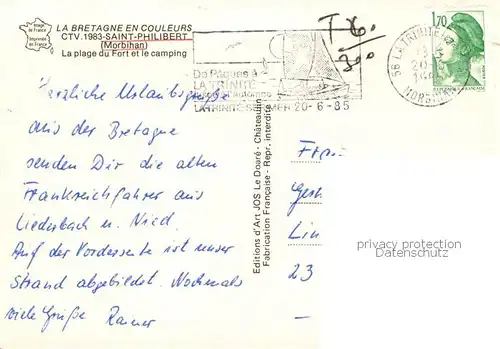 Image de France
Imprimé en France
LA BRETAGNE EN COULEURS
CTV.1983-SAINT-PHILIBERT
(Morbihan)
La plage du Fort et le camping
T6.
300
De Pâques à
LA TRINITE
LA TRINITE S/ MER 20-6-85
56 LA TRINITE
20
MORBIHAN
1,70
Herzliche Urlaubsgrüße
aus der Bretagne
senden Dir die alten
Frankreichfahrer aus
Liederbach u. Nied.
Auf der Vorderseite ist unser
Strand abgebildet. Nochmals
viele Grüße Rainer
Editions d'Art JOS Le Doaré - Châteaulin
Fabrication Française - Repr. interdite
Frau
Gest
Lin
23
privacy protection
Datenschutz